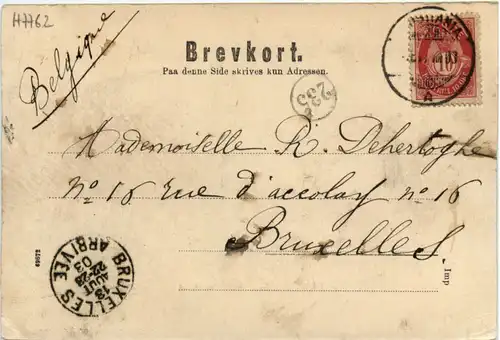 H7762
Belgique
Brevkort.
Paa denne Side skrives kun Adressen.
10
A
233
Mademoiselle R. Dehertoghe
No 16 rue d'accolay no 16
Bruxelles.
BRUXELLES
ARRIVEE
13
AOUT
22-23
03
Imp